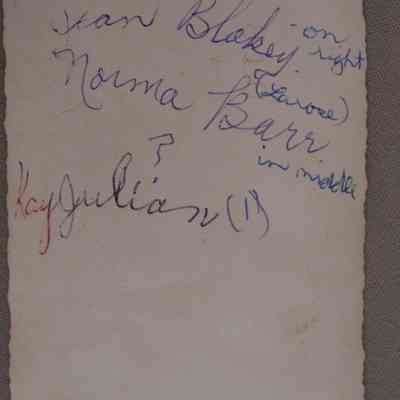 Jean Blakey on right
Norma (Larose) Barr
in middle
?
Kay Julian (1)